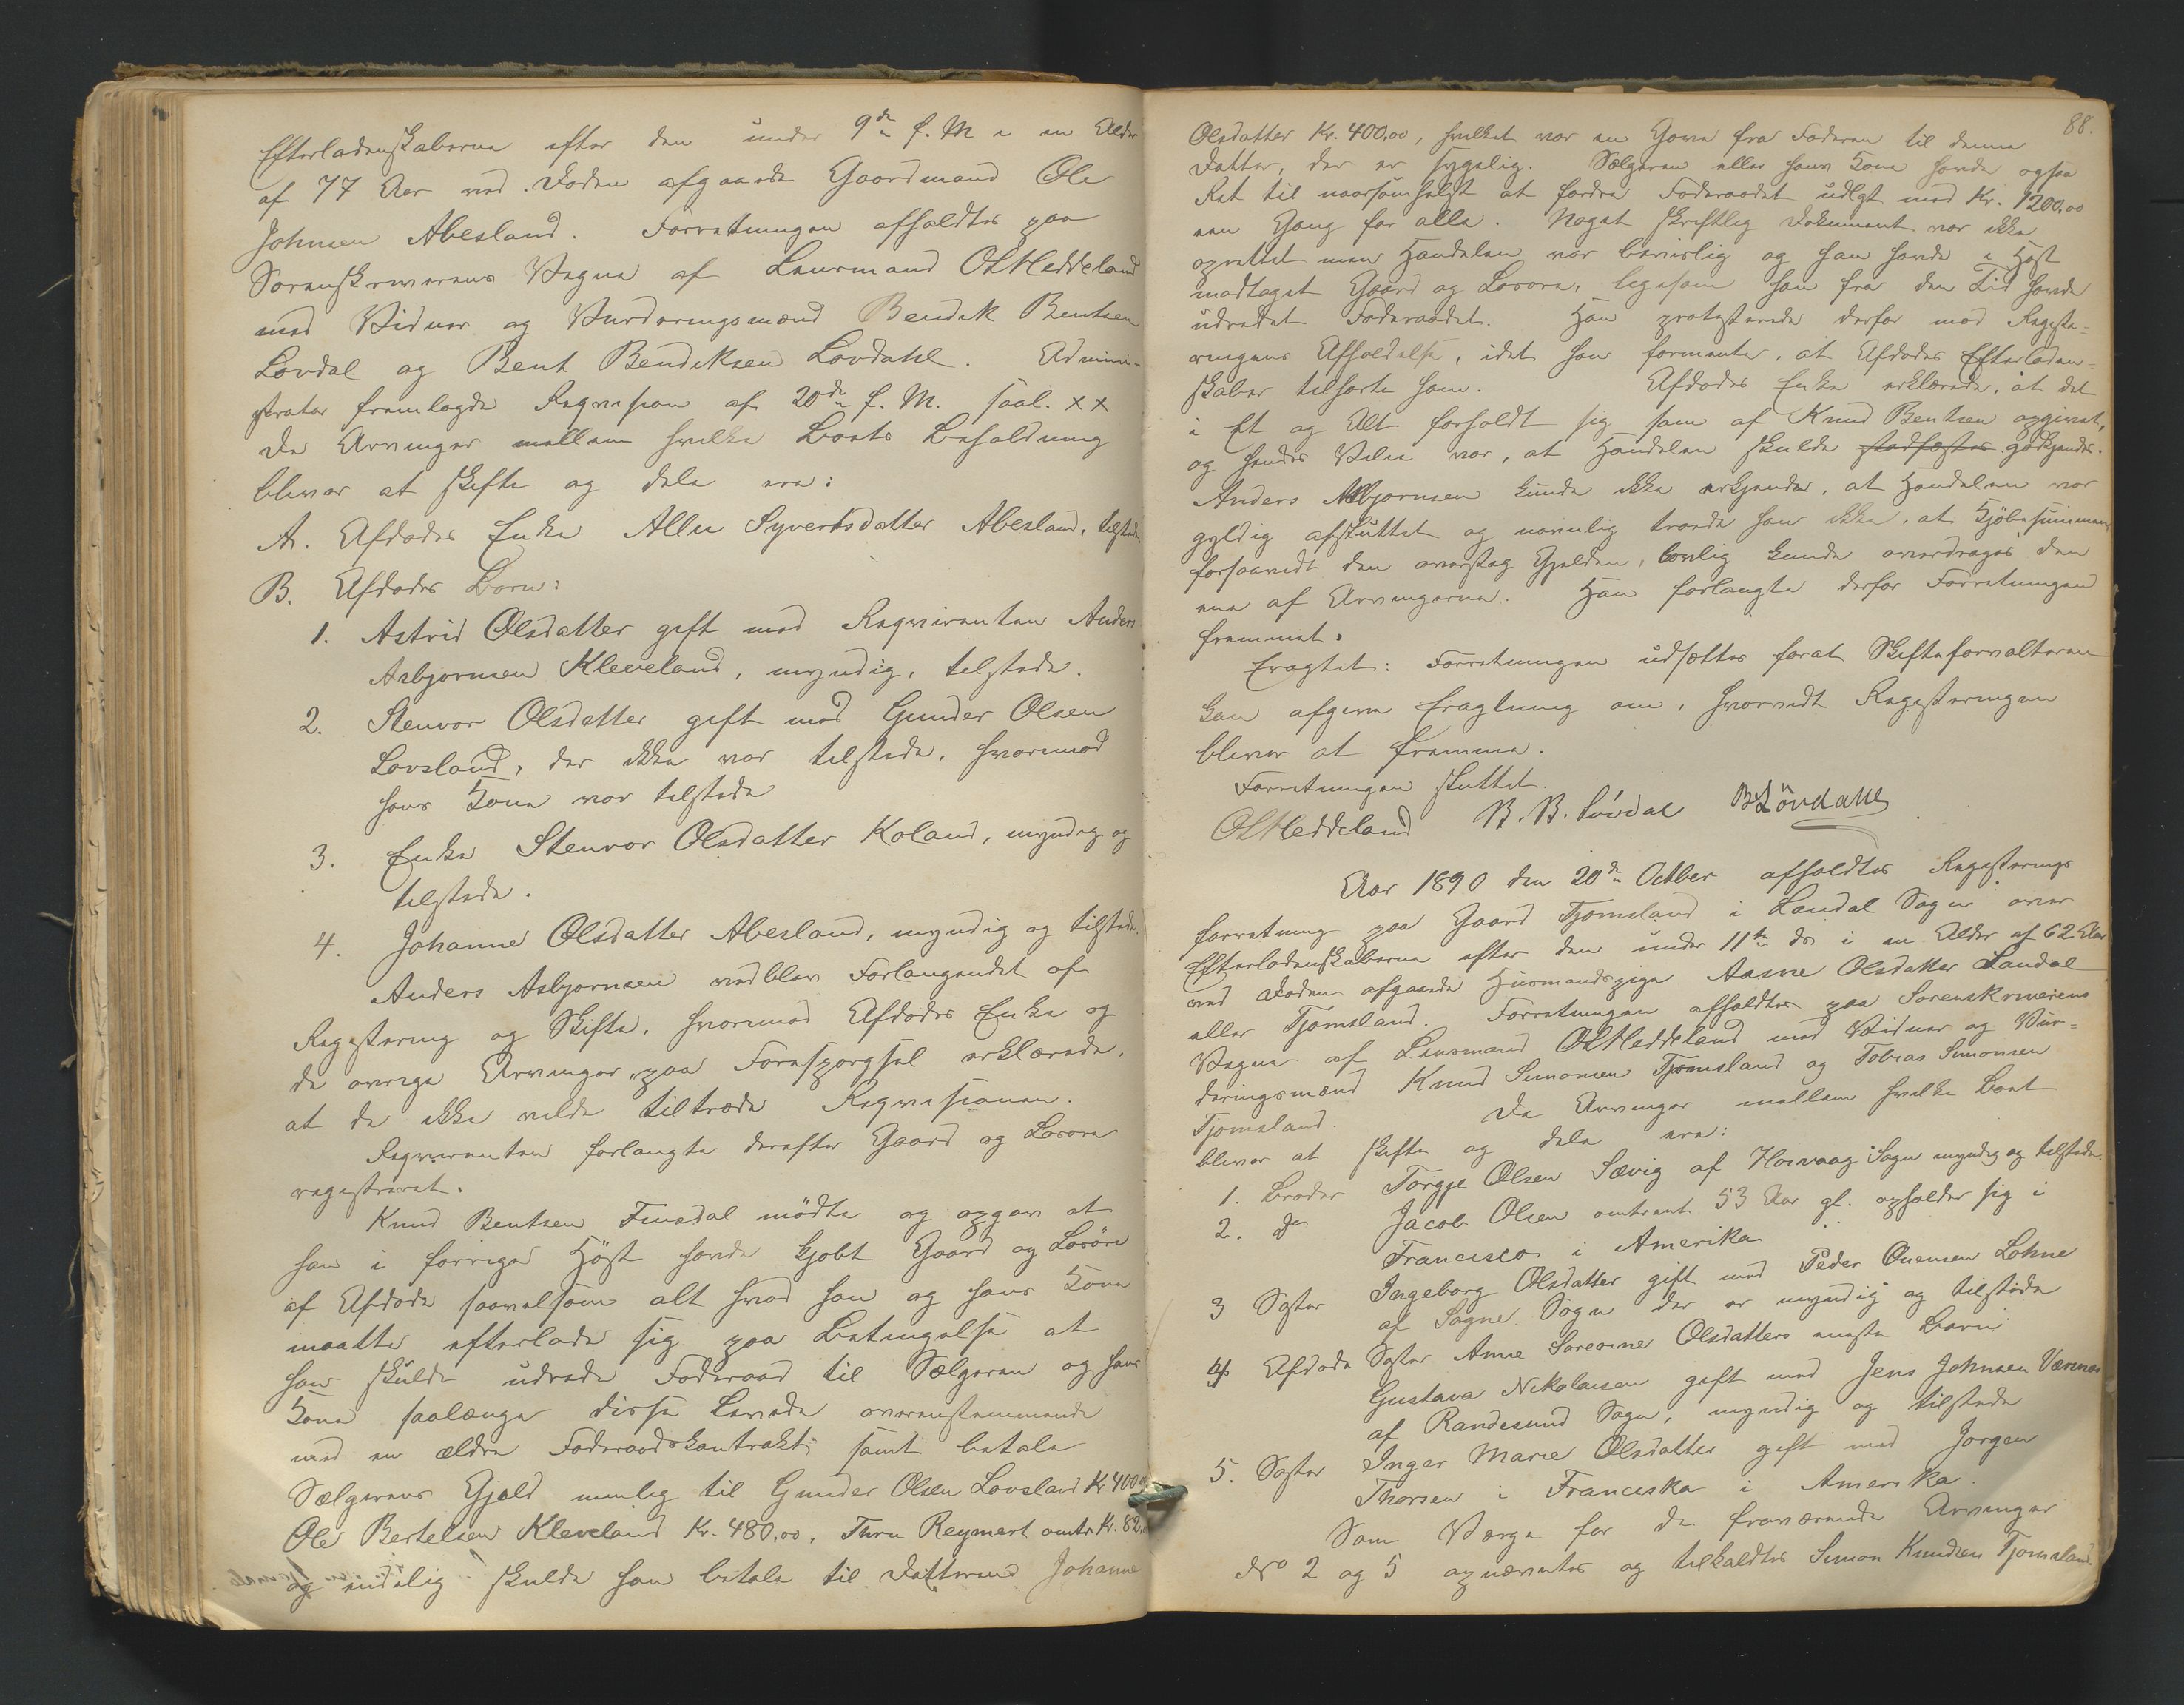 Efterladenskaberne efter den under 9de f. M i en Alder
af 77 Aar ved Døden afgaaede Gaardmand Ole
Johnsen Abesland. Forretningen afholdtes paa
Sorenskriverens Vegne af Lensmand O L Heddeland
med Vidner og Vurderingsmænd Bendik Bentsen
Lovdal og Bent Bendiksen Lovdahl. Admini-
strator fremlagde Reqvisition af 20de f. M. saal. x x
De Arvinger mellem hvilke Boets Beholdning
bliver at skifte og dele ere:
A. Afdødes Enke Allu Syvertsdatter Abesland, tilstede
B. Afdødes Børn:
1. Astrid Olsdatter gift med Reqvirenten Anders
Asbjornsen Kleveland, myndig, tilstede.
2. Stenvor Olsdatter gift med Gunder Olsen
Lovsland, der ikke var tilstede, hvorimod
hans Kone var tilstede
3. Enke Stenvor Olsdatter Koland, myndig og
tilstede.
4. Johanne Olsdatter Abesland, myndig og tilstede.
Anders Asbjornsen vedblev Forlangendet af
Registrering og Skifte, hvorimod Afdødes Enke og
de øvrige Arvinger, paa Forespørgsel erklærede,
at de ikke vilde tiltræde Reqvisitionen.
Reqvirenten forlangte derefter Gaard og Løsøre
registreret.
Knud Bentsen Finsdal mödte og opgav at
han i forrige Höst havde kjøbt Gaard og Løsöre
af Afdøde saavelsom alt hvad han og hans Kone
maatte efterlade sig paa Betingelse at
han skulde udrede Føderaad til Sælgeren og hans
Kone saalænge disse levede overensstemmende
med en ældre Føderaadskontrakt samt betale
Sælgerens Gjæld nemlig til Gunder Olsen Lovsland Kr 400,00
Ole Bertelsen Kleveland Kr. 480,00, Thrn Reymert omtr. Kr. 82,
og endelig skulde han betale til Datteren Johanne
88.
Olsdatter Kr. 400,00, hvilket var en Gave fra Faderen til denne
Datter, der er sygelig. Sælgeren eller hans Kone havde ogsaa
Ret til naarsomhelst at fordre Føderaadet udlgt med Kr. 1200,00
een Gang for alle. Noget skriftlig Dokument var ikke
oprettet men Handelen var bevislig og han havde i Høst
modtaget Gaard og Løsøre, ligesom han fra den Tid havde
udredet Føderaadet. Han protesterede derfor mod Registre-
ringens Afholdelse, idet han formente, at Afdødes Efterladen-
skaber tilhørte ham. Afdødes Enke erklærede, at det
i Et og Alt forholdt sig som af Knud Bentsen opgivet,
og hendes Vilie var, at Handelen skulde stadfæstes godkjendes.
Anders Asbjornsen kunde ikke erkjende, at Handelen var
gyldig afsluttet og navnlig troede han ikke, at Kjöbesummen,
forsaavidt den oversteg Gjælden, lovlig kunde overdrages den
ene af Arvingerne. Han forlangte derfor Forretningen
fremmet.
Eragtet: Forretningen udsættes forat Skifteforvalteren
kan afgive Eragtning om, hvorvidt Registreringen
bliver at fremme.
Forretningen sluttet.
O L Heddeland B. B. Lövdal B B Lövdahl
Aar 1890 den 20de Octber afholdtes Registrerings
forretning paa Gaard Tjomsland i Laudal Sogn over
Efterladenskaberne efter den under 11te ds i en Alder af 62 Aar
ved Døden afgaaede Huusmandspige Aasne Olsdatter Laudal
eller Tjomsland. Forretningen afholdtes paa Sorenskriverens
Vegne af Lensmand O L Heddeland med Vidner og Vur-
deringsmænd Knud Simonsen Tjomsland og Tobias Simonsen
Tjomsland. De Arvinger mellem hvilke Boet
bliver at skifte og dele ere:
1. Broder Torgje Olsen Sævig af Hoivaag Sogn myndig og tilstede.
2. do Jacob Olsen omtrent 53 Aar gl. opholder sig i
Francisco i Amerika
3 Søster Ingeborg Olsdatter gift med Peder Ouensen Lohne
af Søgne Sogn der er myndig og tilstede
4 Afdøde Søster Anne Soreovine Olsdatters eneste Barn:
Gustava Nikolaisen gift med Jens Johnsen Værnes
af Randesund Sogn, myndig og tilstede
5. Søster Inger Marie Olsdatter gift med Jørgen
Thorsen i Franciska i Amerika.
Som Værge for de fraværende Arvinger
No 2 og 5 opnævntes og tilkaldtes Simon Knudsen Tjomsland.